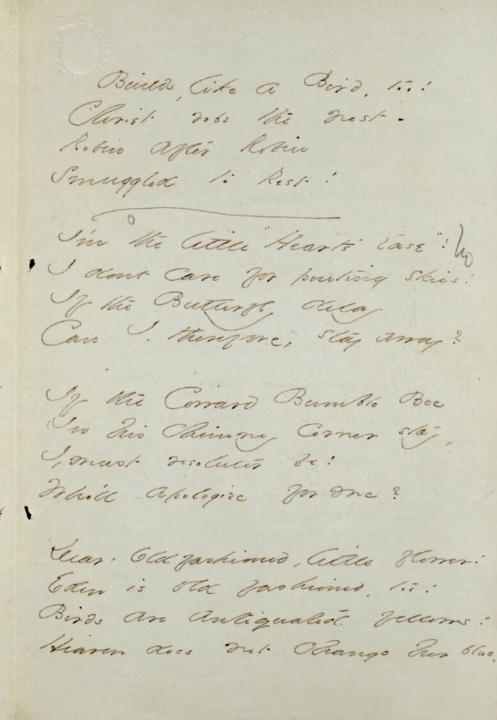 Builds, like a Bird, too!
Christ robs the nest -
Robin after Robin
Smuggled to Rest!
I'm the little "Heart's Ease"!
I dont care for pouting skies!
If the Butterfly delay
Can I, therefore, stay away?
If the Coward Bumble Bee
In his chimney corner stay,
I, must resoluter be!
Who'll apologize for me?
Dear - Old fashioned, little flower!
Eden is old fashioned, too!
Birds are antiquated fellows!
Heaven does not change her blue.